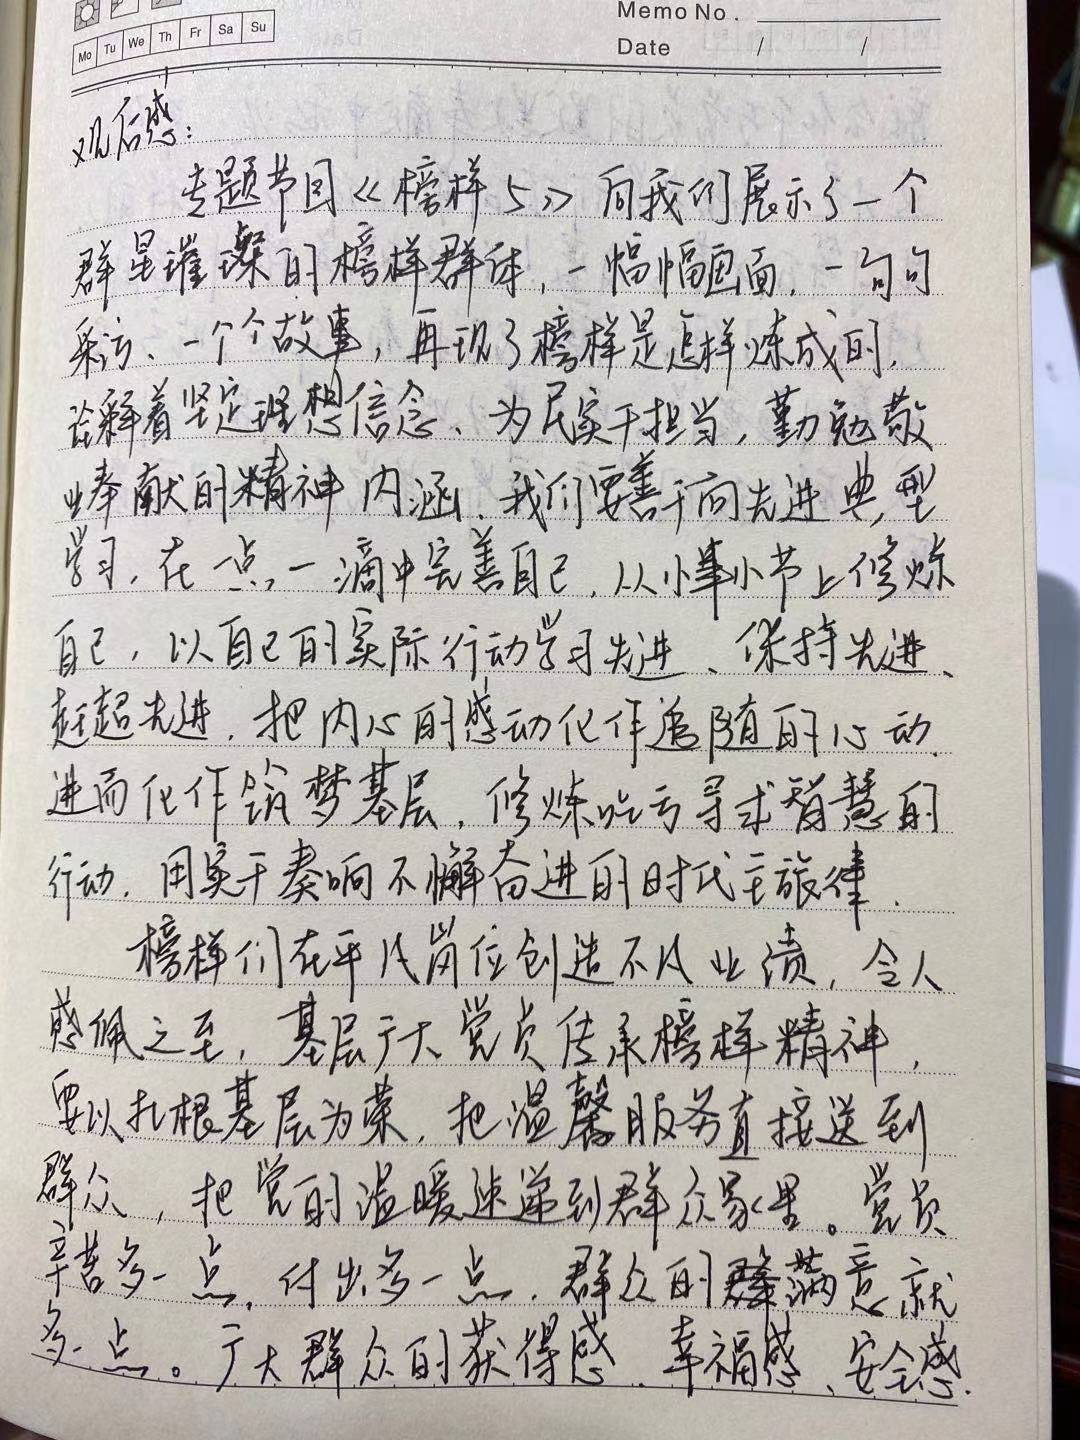 Memo No.
Mo Tu We Th Fr Sa Su
Date / /
观后感:
专题节目《榜样5》向我们展示了一个
群星璀璨的榜样群体,一幅幅画面,一句句
采访、一个个故事,再现了榜样是怎样炼成的,
诠解着坚定理想信念、为民实干担当,勤勉敬
业奉献的精神内涵.我们要善于向先进典型
学习,在一点一滴中完善自己,从小事小节上修炼
自己,以自己的实际行动学习先进、保持先进、
赶超先进.把内心的感动化作追随的心动.
进而化作筑梦基层,修炼吃亏寻求智慧的
行动.用实干奏响不懈奋进的时代主旅律.
榜样们在平凡岗位创造不凡业绩,令人
感佩之至,基层广大党员传承榜样精神,
要以扎根基层为荣,把温馨服务直接送到
群众,把党的温暖速递到群众家里。党员
辛苦多一点,付出多一点.群众的满意就
多一点。广大群众的获得感、幸福感、安全感.